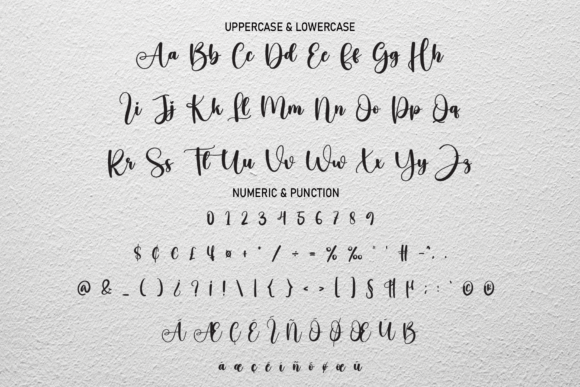 UPPERCASE & LOWERCASE
Aa Bb Cc Dd Ee Ff Gg Hh
Ii Jj Kk Ll Mm Nn Oo Pp Qq
Rr Ss Tt Uu Vv Ww Xx Yy Zz
NUMERIC & PUNCTION
0 1 2 3 4 5 6 7 8 9
$ ¢ € £ ¥ ¤ + * / ÷ = % ‰ " '
@ & _ ( ) ¿ ? ¡ ! \ | { } < > [ ] § ; : © ®
Æ Ç É Î Ñ Ø Œ
æ ç é î ñ ø œ ü